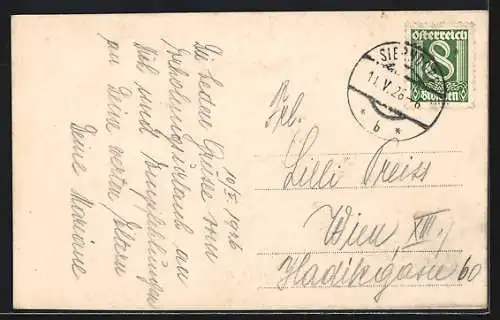 10/V 1926
Die besten Grüsse vom
Erholungsurlaub an
Dich und Empfehlungen
an Deine werten Eltern
Deine Mariane
Österreich
8
Groschen
11.V.26
* b *
Frl.
Lilli Preiss
Wien XIII.
Hadikgasse 60